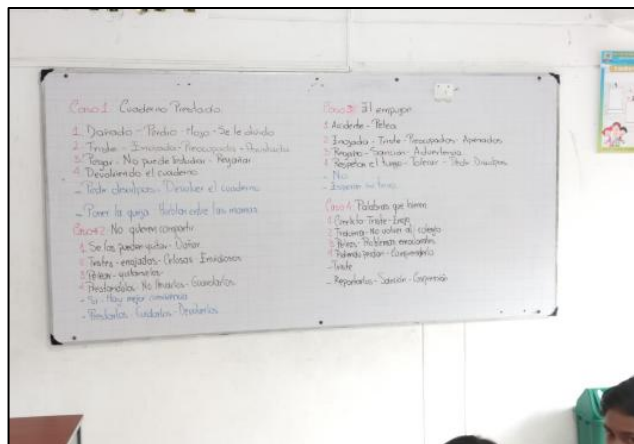 Caso 1 Cuaderno Prestado
1. Dañado - Perdio - Mojo - Se le olvido
2. Triste - Enojada - Preocupada - Asustada
3. Pagar - No puede estudiar - Regañar
4 Devolviendo el cuaderno
- Pedir disculpas - Devolver el cuaderno
- Poner la queja Hablar entre las mamas
Caso # 2 No quieren compartir
1 Se los pueden quitar - Dañar
2 Tristes - enojados - Celosos - Envidiosos
3 Pelean - quitarselos
4 Prestandolos - No tirarlos - Guardarlos
- Si - Hay mejor convivencia
- Prestarlos - Cuidarlos - Devolverlos
Caso 3: El empujon
1 Accidente - Pelea
2 Enojado - Triste - Preocupados - Apenados
3 Regaño - Sancion - Advertencia
4 Respetar el turno - Tolerar - Pedir Disculpas
- No
- Esperar su turno
Caso 4: Palabras que hieren
1 Conflicto Triste - Enojo
2 Tristeza - No volver al colegio
3 Peleas - Problemas emocionales
4 Pidiendo perdon - Comprenderla
- Triste
- Reportarlos - Sanción -